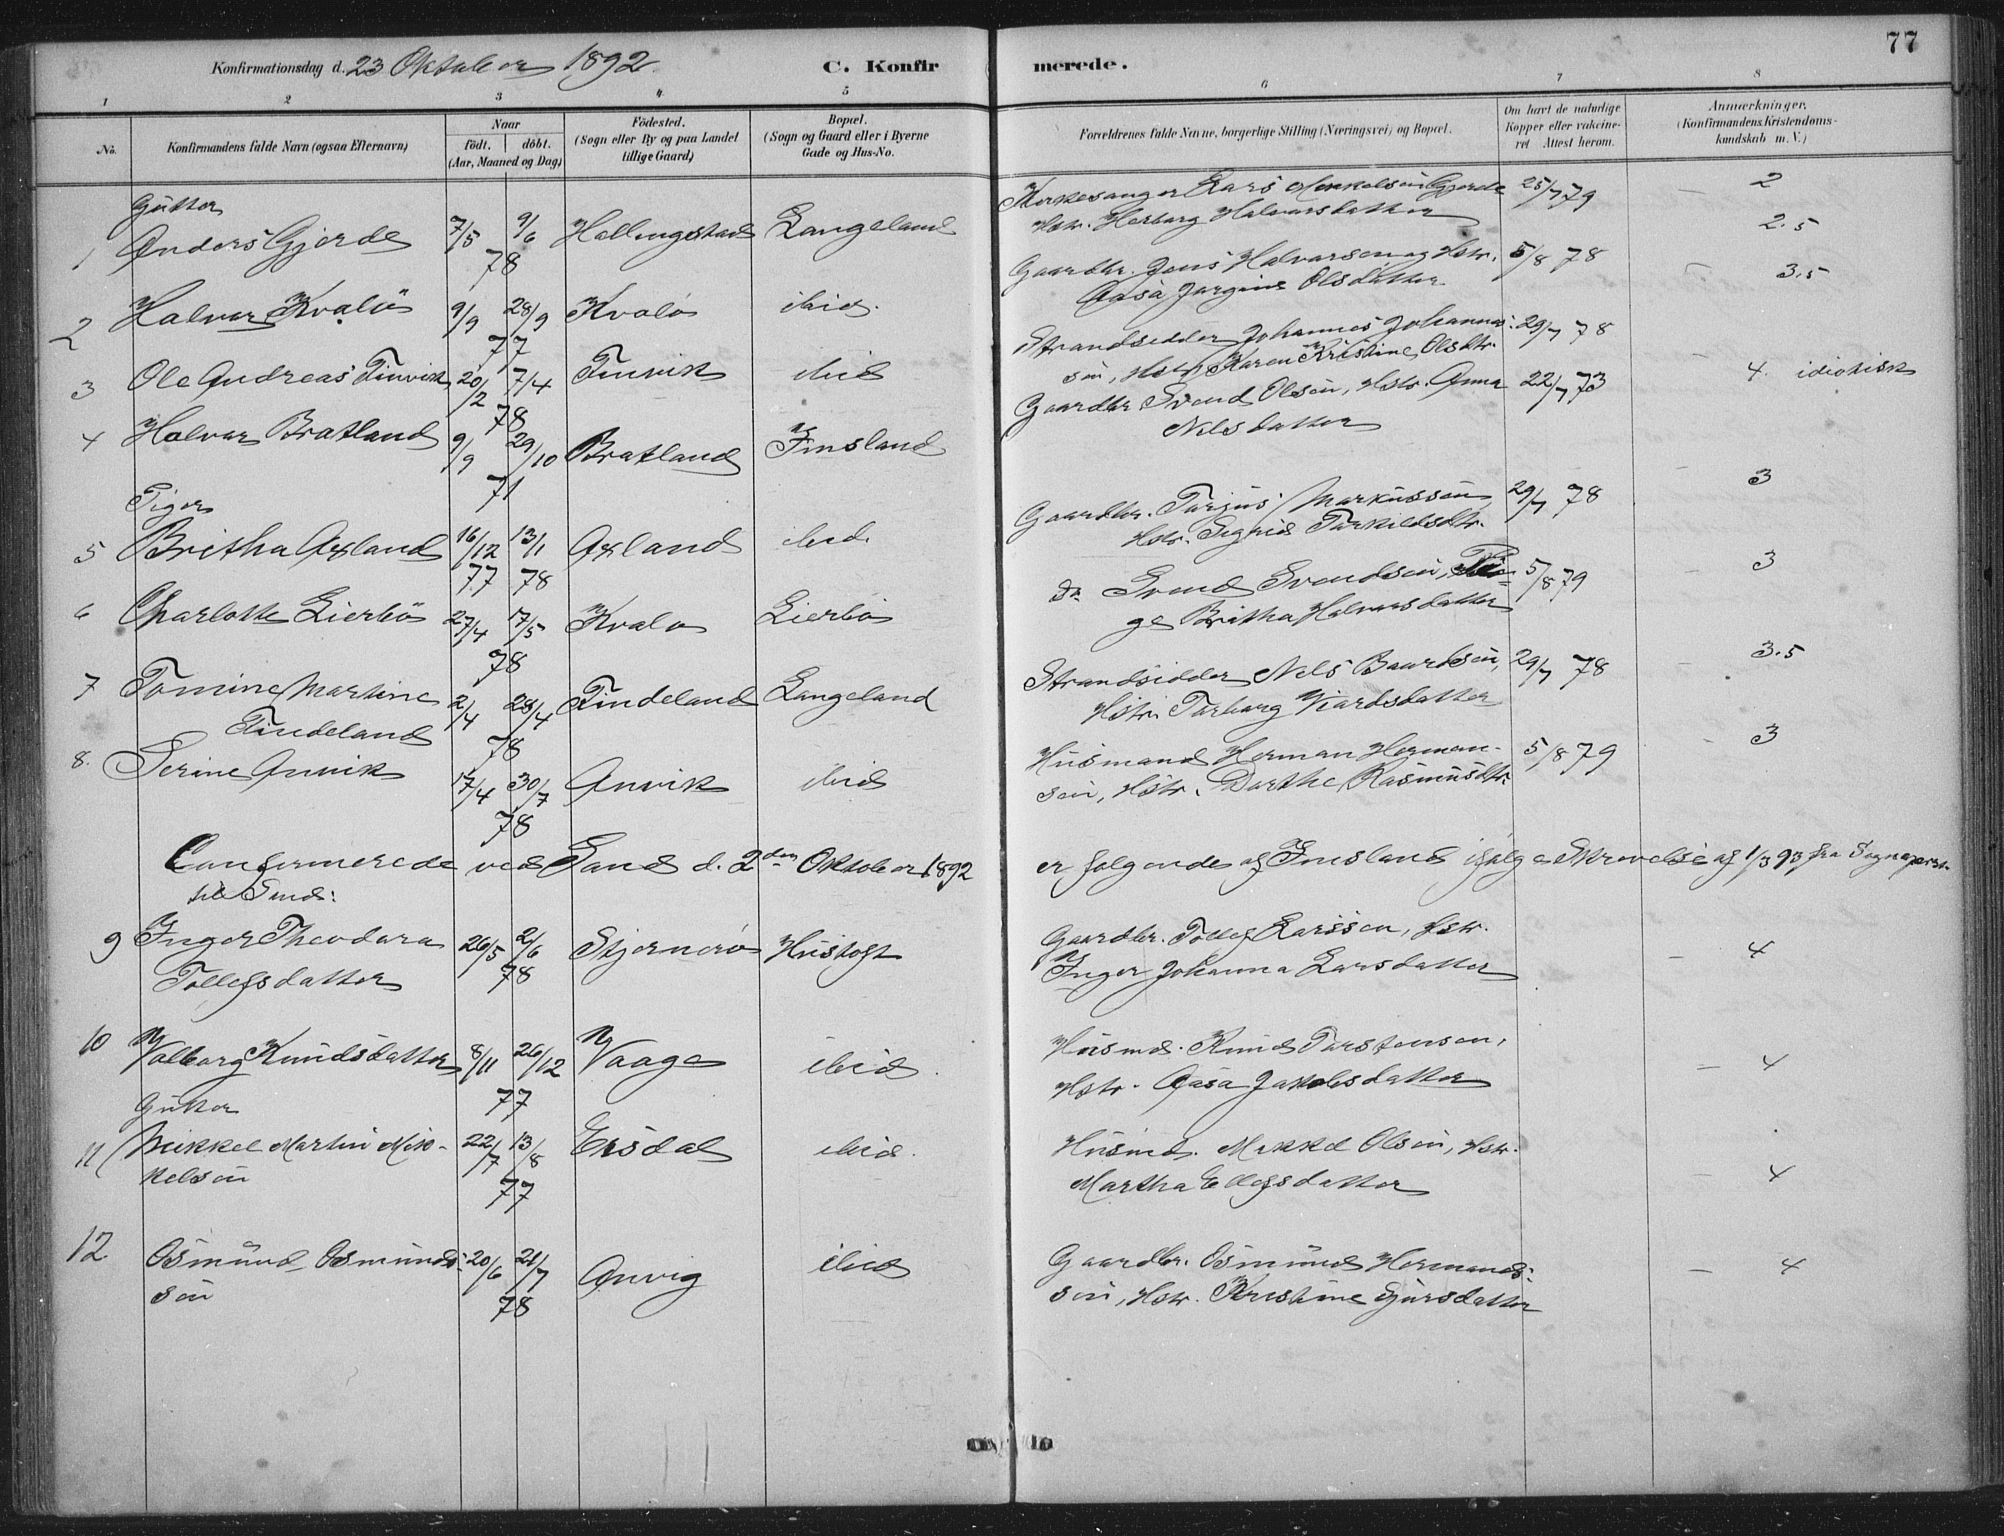 Konfirmationsdag d. 23 Oktober 1892.
C. Konfirmerede.
77
1 2 3 4 5 6 7 8
No.
Konfirmandens fulde Navn (ogsaa Efternavn)
Naar
födt. döbt.
(Aar, Maaned og Dag)
Födested.
(Sogn eller By og paa Landet
tillige Gaard)
Bopæl.
(Sogn og Gaard eller i Byerne
Gade og Hus-No.
Forældrenes fulde Navne, borgerlige Stilling (Næringsvei) og Bopæl.
Om havt de naturlige
Kopper eller vakcine-
ret Attest herom.
Anmærkninger.
(Konfirmandens Kristendoms-
kundskab m. V.)
Gutter
1 Anders Gjerde 7/5 9/6 78 Hellingstad Langeland
Kirkesanger Lars Mikkelsen Gjerde 25/7 79 – 2
Hstr. Herborg Halvarsdatter
2 Halvar Kvalö 9/9 28/9 77 Kvalö ibid.
Gaardbr. Jens Halvarsen og Hstr. 5/8 78 2.5
Aasa Jørgine Olsdatter – 3.5
3 Ole Andreas Tinvik 20/2 7/4 78 Tinvik ibid
Strandsidder Johannes Johannes- 29/7 78
sön, Hstr. Karen Kristine Olsdtr.
4 Halvar Bratland 9/9 29/10 71 Bratland Imsland
Gaardbr. Svend Olsön, Hstr. Anna 22/7 73 – 4. idiotisk
Nilsdatter
Piger
5 Britha Axland 16/12 77 13/1 78 Axland ibid.
Gaardbr. Tarjus Markussön 29/7 78 – 3
Hstr. Sigrid Tarkildsdtr.
6 Charlotte Lierbö 27/4 17/5 78 Kvalö Lierbö
do Svend Svendsön, Pi- 5/8 79 – 3
ge Britha Halvarsdatter
7 Tomine Martine 2/4 28/4 78 Tindeland Langeland
Tindeland
Strandsidder Nels Baardsön, 29/7 78 – 3.5
Hstr. Tarborg Viardsdatter
8. Serine Anvik 17/4 30/7 78 Anvik ibid
Husmand Herman Herman- 5/8 79 – 3
sön, Hstr. Dorthe Rasmusdtr.
Confirmerede ved Sand d. 2den Oktober 1892 er følgende af Imsland ifølge Skrivelse af 1/3 93 fra Sogneprst.
til Sand:
9 Inger Theodora 26/5 2/6 78 Stjernerö Hustoft
Tollefsdatter
Gaardbr. Tollef Larssen, Hstr.
Inger Johanna Larsdatter – 4
10 Valborg Knudsdatter 8/11 26/12 77 Vaage ibid.
Husmd. Knud Tarstensen,
Hstr. Aasa Jakobsdatter – 4
Gutter
11 Mikkel Martin Mik- 22/7 13/8 77 Eiksdal ibid.
kelsön
Husmd. Mikkel Olsön, Hstr.
Martha Ellefsdatter – 4
12 Osmund Osmunds- 20/6 21/7 78 Anvig ibid
sön
Gaardbr. Osmund Hermands-
sön, Hstr. Kristine Sjursdatter – 4